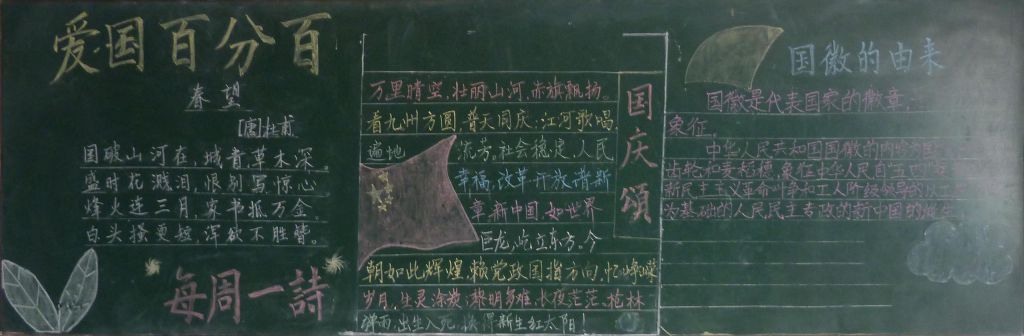 爱国百分百
春望
[唐]杜甫
国破山河在,城春草木深。
感时花溅泪,恨别写惊心
烽火连三月,家书抵万金。
白头搔更短,浑欲不胜簪。
每周一詩
万里晴空,壮丽山河,赤旗飘扬。
看九州方圆,普天同庆;江河歌唱,
遍地流芳。社会稳定,人民
幸福,改革开放谱新
章,新中国,如世界
巨龙,屹立东方。今
朝如此辉煌,赖党政国指方向,忆峥嵘
岁月,生灵涂炭;黎明多难,长夜茫茫,枪林
弹雨,出生入死,换得新生红太阳!
国庆頌
国徽的由来
国徽是代表国家的徽章、
象征。
中华人民共和国国徽的内容为国旗、
齿轮和麦稻穗,象征中华人民自五四运动
新民主主义革命斗争和工人阶级领导的以工农
为基础的人民民主专政的新中国的诞生